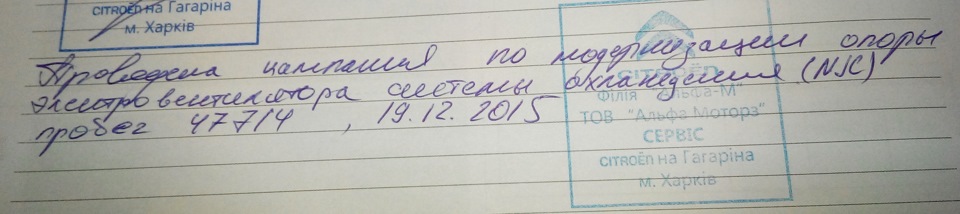 CITROËN на Гагаріна
м. Харків
Проведена кампания по модернизации опоры
электровентилятора системы охлаждения (NJC)
пробег 47714, 19.12.2015
CITROËN
Філія "Альфа-М"
ТОВ "Альфа Моторз"
СЕРВІС
CITROËN на Гагаріна
м. Харків